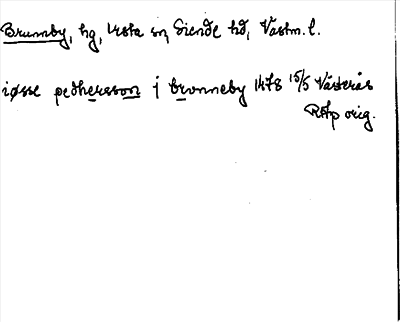 Brunnby, hg, Irsta sn, Siende hd, Västm. l.
iøsse pedhersson j bronneby 1478 15/5 Västerås
RAp orig.